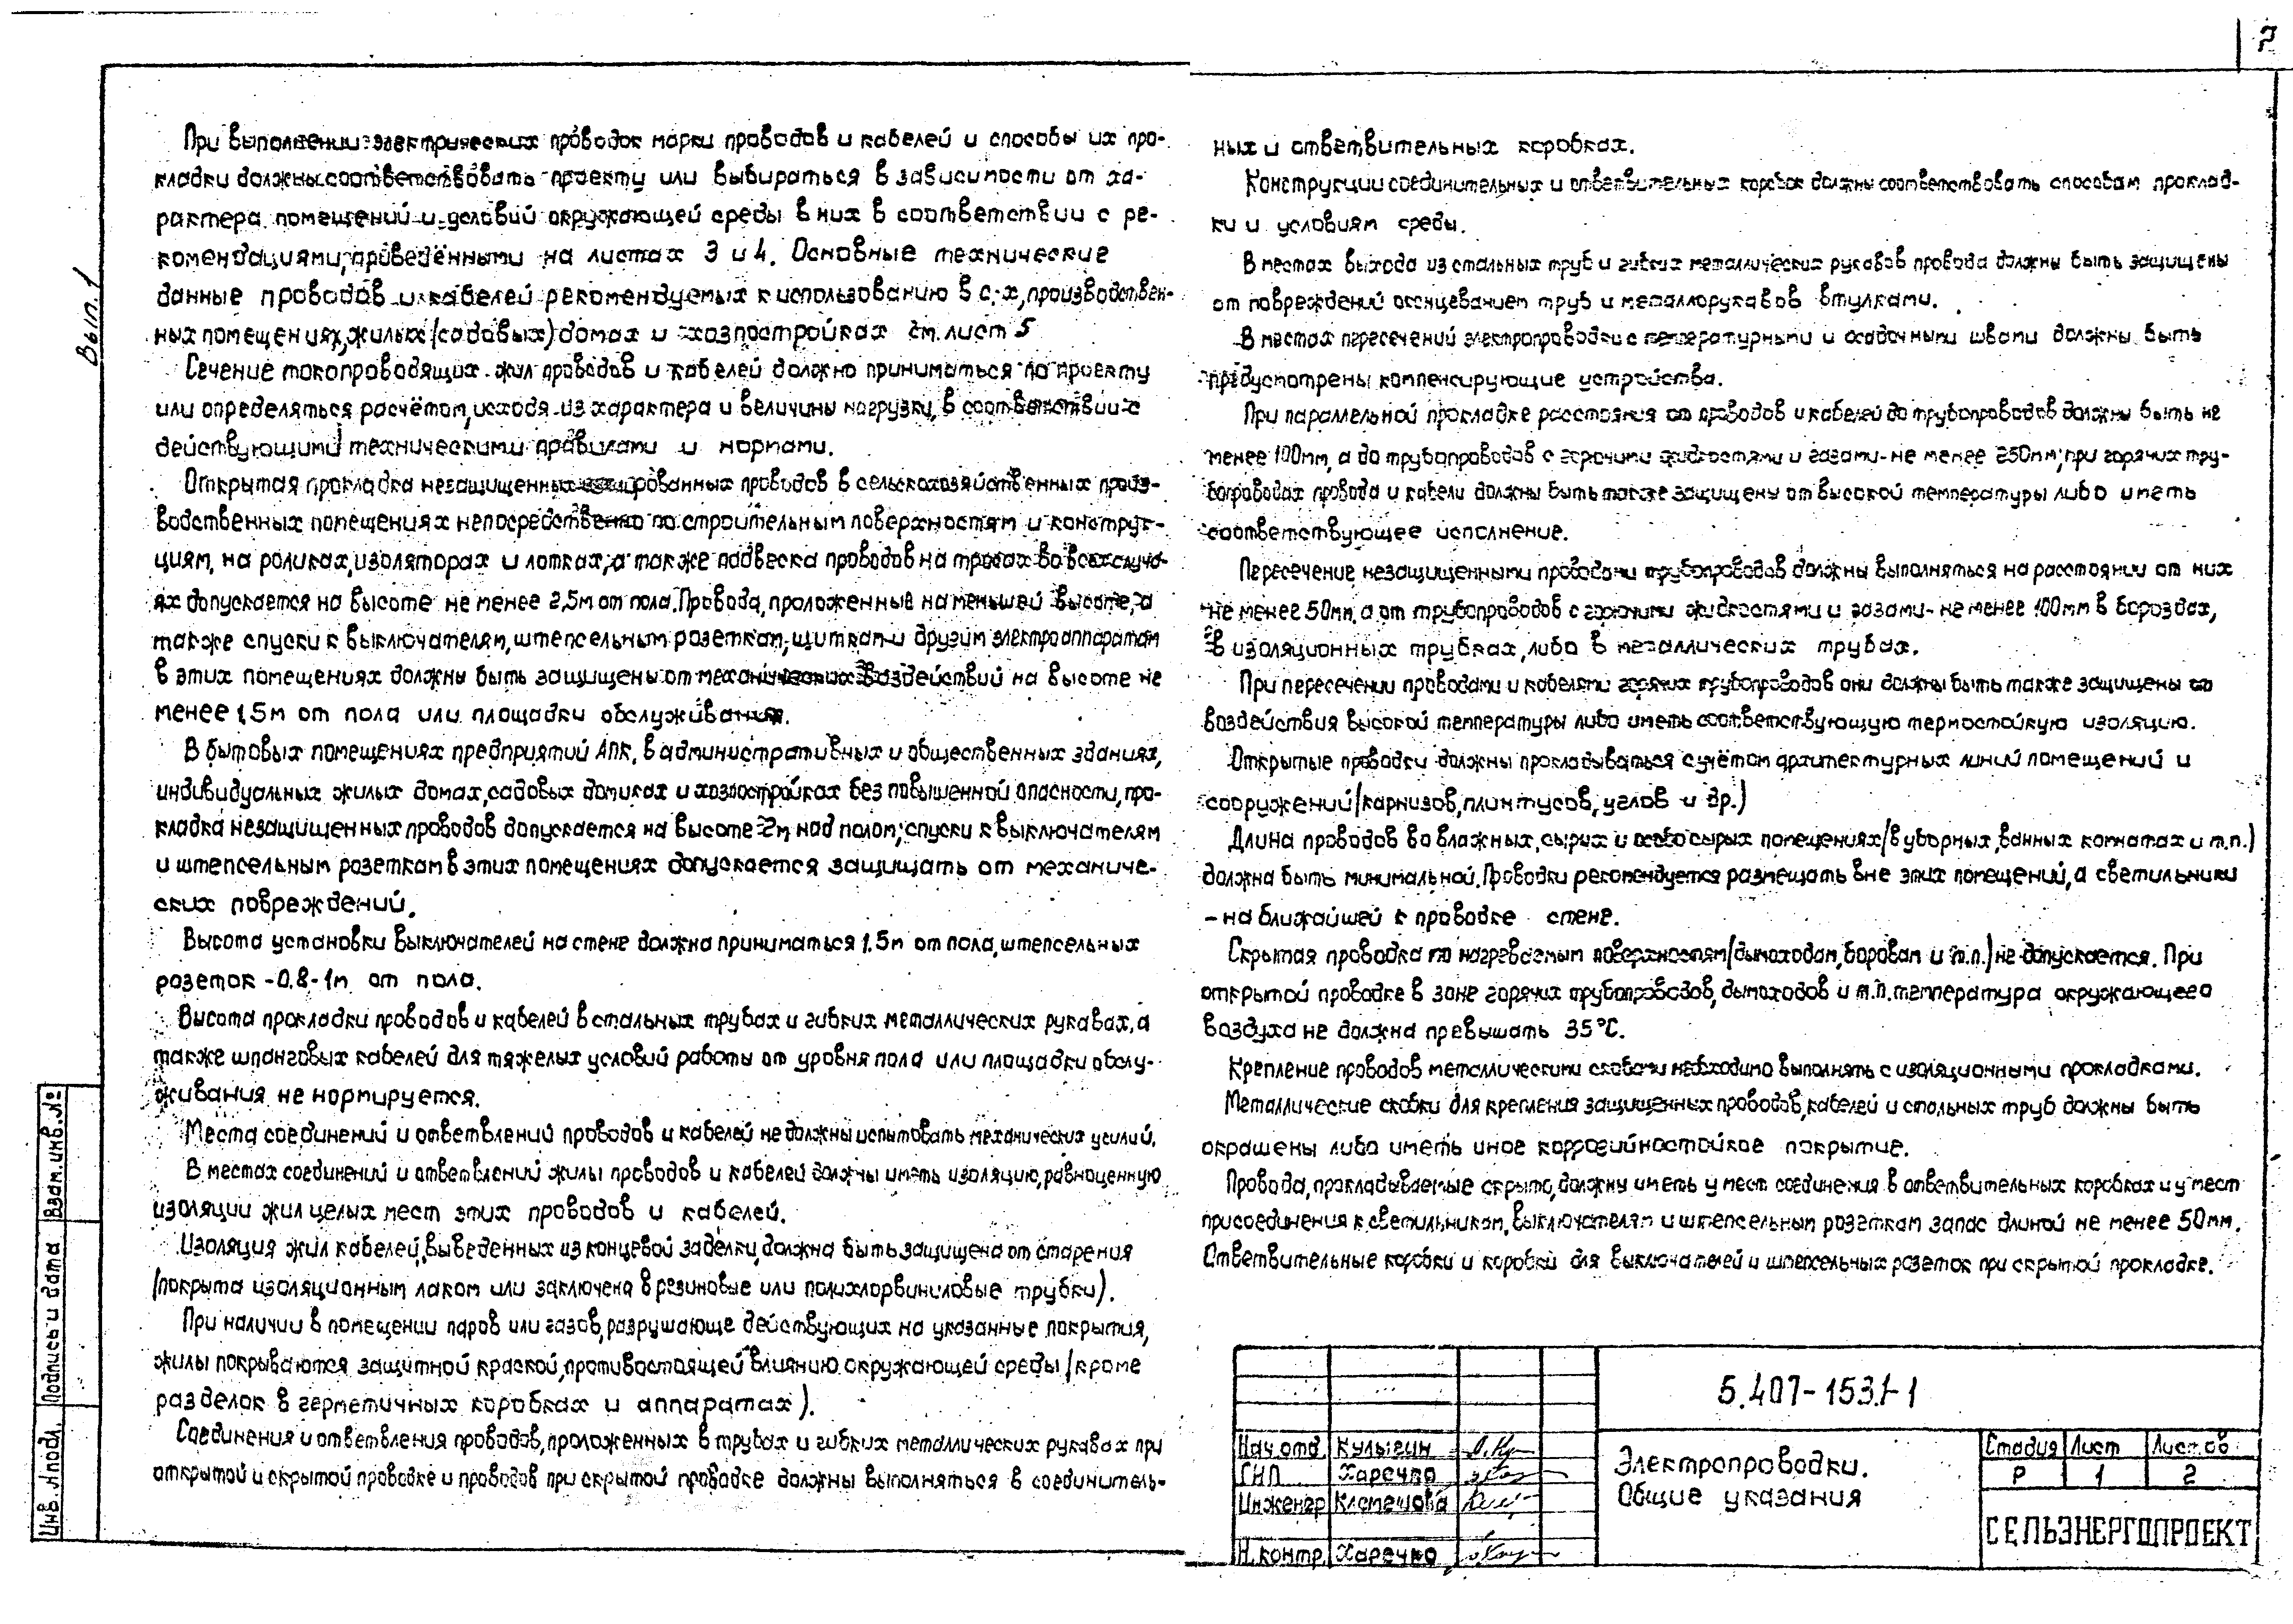 7
Вып. 1
При выполнении электрических проводок марки проводов и кабелей и способы их про-
кладки должны соответствовать проекту или выбираться в зависимости от ха-
рактера помещений и условий окружающей среды в них в соответствии с ре-
комендациями, приведёнными на листах 3 и 4. Основные технические
данные проводов и кабелей рекомендуемых к использованию в с.-х, производствен-
ных помещениях, жилых (садовых) домах и хозпостройках см. лист 5
Сечение токопроводящих жил проводов и кабелей должно приниматься по проекту
или определяться расчётом, исходя из характера и величины нагрузки, в соответствии с
действующими техническими правилами и нормами.
Открытая прокладка незащищенных изолированных проводов в сельскохозяйственных произ-
водственных помещениях непосредственно по строительным поверхностям и конструк-
циям, на роликах, изоляторах и лотках, а также подвеска проводов на тросах во всех случа-
ях допускается на высоте не менее 2,5м от пола. Провода, проложенные на меньшей высоте, а
также спуски к выключателям, штепсельным розеткам, щиткам и другим электроаппаратам
в этих помещениях должны быть защищены от механических воздействий на высоте не
менее 1,5м от пола или площадки обслуживания.
В бытовых помещениях предприятий АПК, в административных и общественных зданиях,
индивидуальных жилых домах, садовых домиках и хозпостройках без повышенной опасности, про-
кладка незащищенных проводов допускается на высоте 2м над полом; спуски к выключателям
и штепсельным розеткам в этих помещениях допускается защищать от механиче-
ских повреждений.
Высота установки выключателей на стене должна приниматься 1.5м от пола, штепсельных
розеток -0.8-1м от пола.
Высота прокладки проводов и кабелей в стальных трубах и гибких металлических рукавах, а
также шланговых кабелей для тяжелых условий работы от уровня пола или площадки обслу-
живания не нормируется.
Места соединений и ответвлений проводов и кабелей не должны испытовать механических усилий.
В местах соединений и ответвлений жилы проводов и кабелей должны иметь изоляцию, равноценную
изоляции жил целых мест этих проводов и кабелей.
Изоляция жил кабелей, выведенных из концевой заделки, должна быть защищена от старения
(покрыта изоляционным лаком или заключена в резиновые или полихлорвиниловые трубки).
При наличии в помещении паров или газов, разрушающе действующих на указанные покрытия,
жилы покрываются защитной краской, противостоящей влиянию окружающей среды (кроме
разделок в герметичных коробках и аппаратах).
Соединения и ответвления проводов, проложенных в трубах и гибких металлических рукавах при
открытой и скрытой проводке и проводов при скрытой проводке должны выполняться в соединитель-
ных и ответвительных коробках.
Конструкции соединительных и ответвительных коробок должны соответствовать способам проклад-
ки и условиям среды.
В местах выхода из стальных труб и гибких металлических рукавов провода должны быть защищены
от повреждений оконцеванием труб и металлорукавов втулками.
В местах пересечений электропроводки с температурными и осадочными швами должны быть
предусмотрены компенсирующие устройства.
При параллельной прокладке расстояния от проводов и кабелей до трубопроводов должны быть не
менее 100мм, а до трубопроводов с горючими жидкостями и газами - не менее 250мм; при горячих тру-
бопроводах провода и кабели должны быть также защищены от высокой температуры либо иметь
соответствующее исполнение.
Пересечение незащищенными проводами трубопроводов должны выполняться на расстоянии от них
не менее 50мм, а от трубопроводов с горючими жидкостями и газами - не менее 100мм в бороздах,
в изоляционных трубках, либо в металлических трубах.
При пересечении проводами и кабелями горячих трубопроводов они должны быть также защищены от
воздействия высокой температуры либо иметь соответствующую термостойкую изоляцию.
Открытые проводки должны прокладываться с учётом архитектурных линий помещений и
сооружений (карнизов, плинтусов, углов и др.)
Длина проводов во влажных, сырых и особо сырых помещениях (в уборных, ванных комнатах и т.п.)
должна быть минимальной. Проводки рекомендуется размещать вне этих помещений, а светильники
- на ближайшей к проводке стене.
Скрытая проводка по нагреваемым поверхностям (дымоходам, боровам и т.п.) не допускается. При
открытой проводке в зоне горячих трубопроводов, дымоходов и т.п. температура окружающего
воздуха не должна превышать 35°С.
Крепление проводов металлическими скобами необходимо выполнять с изоляционными прокладками.
Металлические скобки для крепления защищенных проводов, кабелей и стальных труб должны быть
окрашены либо иметь иное коррозийностойкое покрытие.
Провода, прокладываемые скрыто, должны иметь у мест соединения в ответвительных коробках и у мест
присоединения к светильникам, выключателям и штепсельным розеткам запас длиной не менее 50мм.
Ответвительные коробки и коробки для выключателей и штепсельных розеток при скрытой прокладке.
Инв. №подл. Подпись и дата Взам. инв. №
5.407-153.1-1
Нач. отд. Кулыгин
ГИП Харечко
Инженер Клемешова
Н. контр. Харечко
Электропроводки.
Общие указания
Стадия Лист Листов
Р 1 2
СЕЛЬЭНЕРГОПРОЕКТ